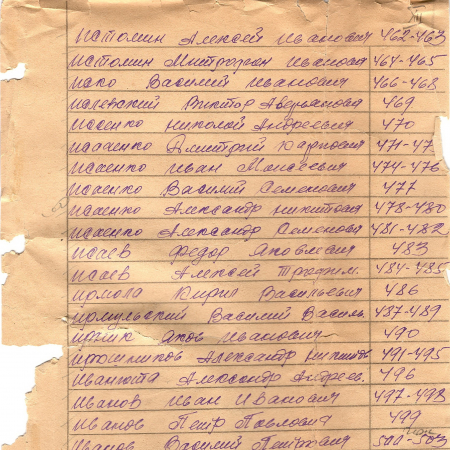 Истомин Алексей Иванович 462-463
Истомин Митрофон Иванович 464-465
Иско Василий Иванович 466-468
Исаевский Виктор Аверьянович 469
Исаенко Николай Андреевич 470
Исаченко Дмитрий Карпович 471-47
Исаенко Иван Моисеевич 474-476
Исаенко Василий Семенович 477
Исаенко Александр Никитович 478-480
Исаенко Александр Семенович 481-482
Исаев Федор Яковлевич 483
Исаев Алексей Трофим. 484-485
Ирмола Кирил Васильевич 486
Василий Василь. 487-489
Яков Иванович 490
Ирошников Александр 491-495
Иванюта Александр Андреев. 496
Иванов Иван Иванович 497-498
Иванов Петр Павлович 499
Иванов Василий Петрович 500-503